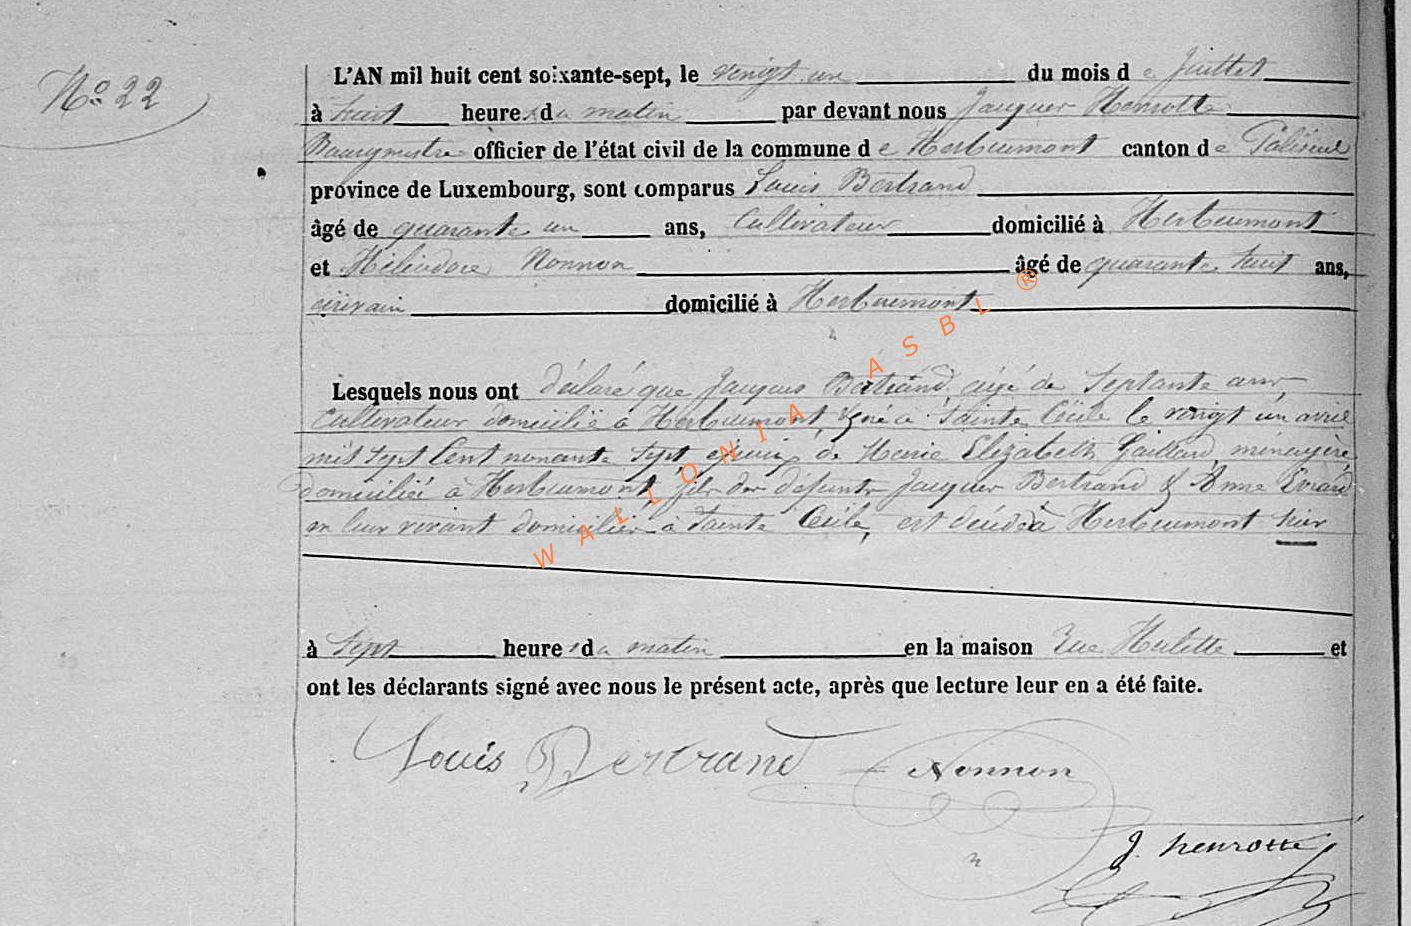 No 22
L'AN mil huit cent soixante-sept, le vingt un du mois de Juillet
à huit heures du matin par devant nous Jacques Henrotte
Bourgmestre officier de l'état civil de la commune de Herbeumont canton de Paliseul
province de Luxembourg, sont comparus Louis Bertrand
âgé de quarante un ans, Cultivateur domicilié à Herbeumont
et Héliodore Nonnon âgé de quarante huit ans,
écrivain domicilié à Herbeumont
Lesquels nous ont déclaré que Jacques Bertrand âgé de Septante ans
Cultivateur domicilié à Herbeumont, né à Sainte Cécile le vingt un avril
mil Sept Cent nonante Sept époux de Marie Elizabeth Gaillard ménagère
domiciliée à Herbeumont, fils des défunts Jacques Bertrand & Anne Evrard
en leur vivant domiciliés à Sainte Cécile, est décédé à Herbeumont hier
à Sept heures du matin en la maison Rue Hulette et
ont les déclarants signé avec nous le présent acte, après que lecture leur en a été faite.
Louis Bertrand
Nonnon
J. henrotte
WALLONIA ASBL ®